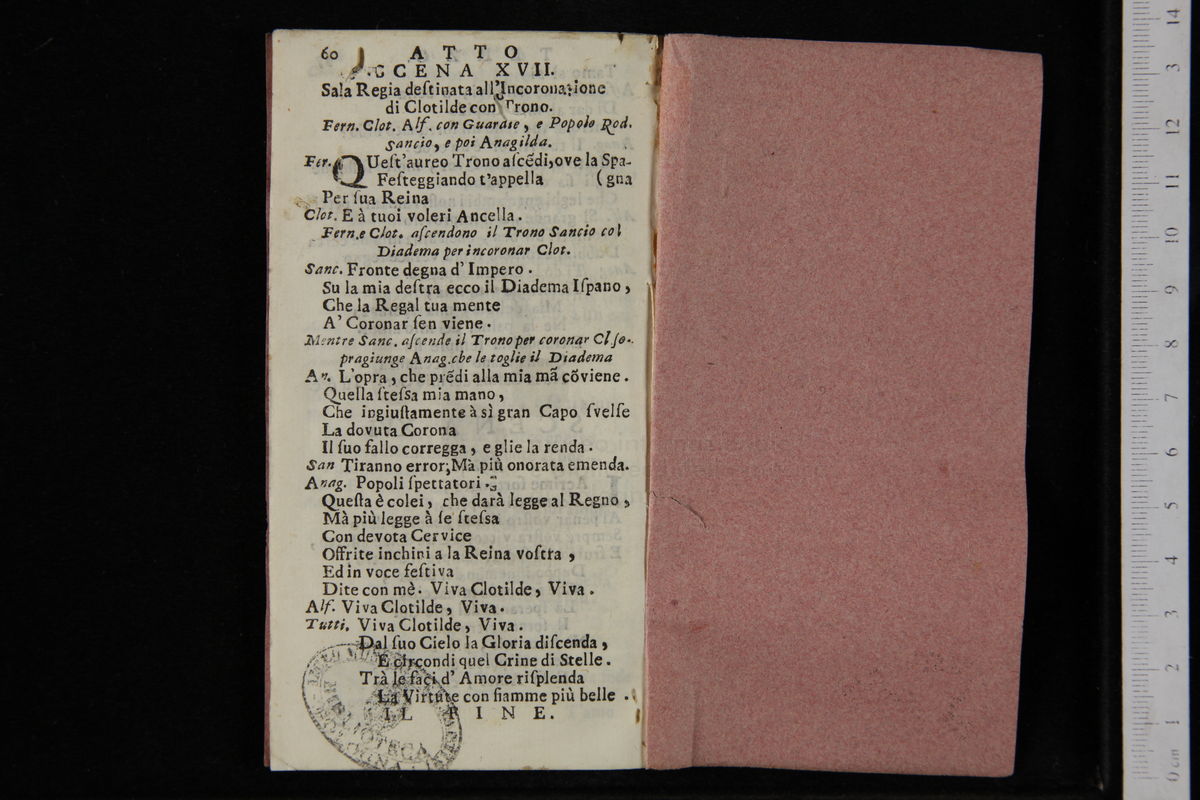 60 ATTO
SCENA XVII.
Sala Regia deſtinata all'Incoronazione
di Clotilde con Trono.
Fern. Clot. Alf. con Guardie, e Popolo Rod.
Sancio, e poi Anagilda.
Fer. QUeſt'aureo Trono aſcẽdi, ove la Spa-
Feſteggiando t'appella (gna
Per ſua Reina
Clot. E à tuoi voleri Ancella.
Fern. e Clot. aſcendono il Trono Sancio col
Diadema per incoronar Clot.
Sanc. Fronte degna d' Impero.
Su la mia deſtra ecco il Diadema Iſpano,
Che la Regal tua mente
A' Coronar ſen viene.
Mentre Sanc. aſcende il Trono per coronar Cl ſo-
pragiunge Anag. che le toglie il Diadema
An. L'opra, che prẽdi alla mia mã cõviene.
Quella ſteſsa mia mano,
Che ingiuſtamente à sì gran Capo ſvelſe
La dovuta Corona
Il ſuo fallo corregga, e glie la renda.
San Tiranno error; Mà più onorata emenda.
Anag. Popoli ſpettatori
Queſta è colei, che darà legge al Regno,
Mà più legge à ſe ſteſsa
Con devota Cervice
Offrite inchini a la Reina voſtra,
Ed in voce feſtiva
Dite con mè. Viva Clotilde, Viva.
Alf. Viva Clotilde, Viva.
Tutti. Viva Clotilde, Viva.
Dal ſuo Cielo la Gloria diſcenda,
E circondi quel Crine di Stelle.
Trà le faci d' Amore riſplenda
La Virtute con fiamme più belle.
IL FINE.
0 cm 1 2 3 4 5 6 7 8 9 10 11 12 3 14